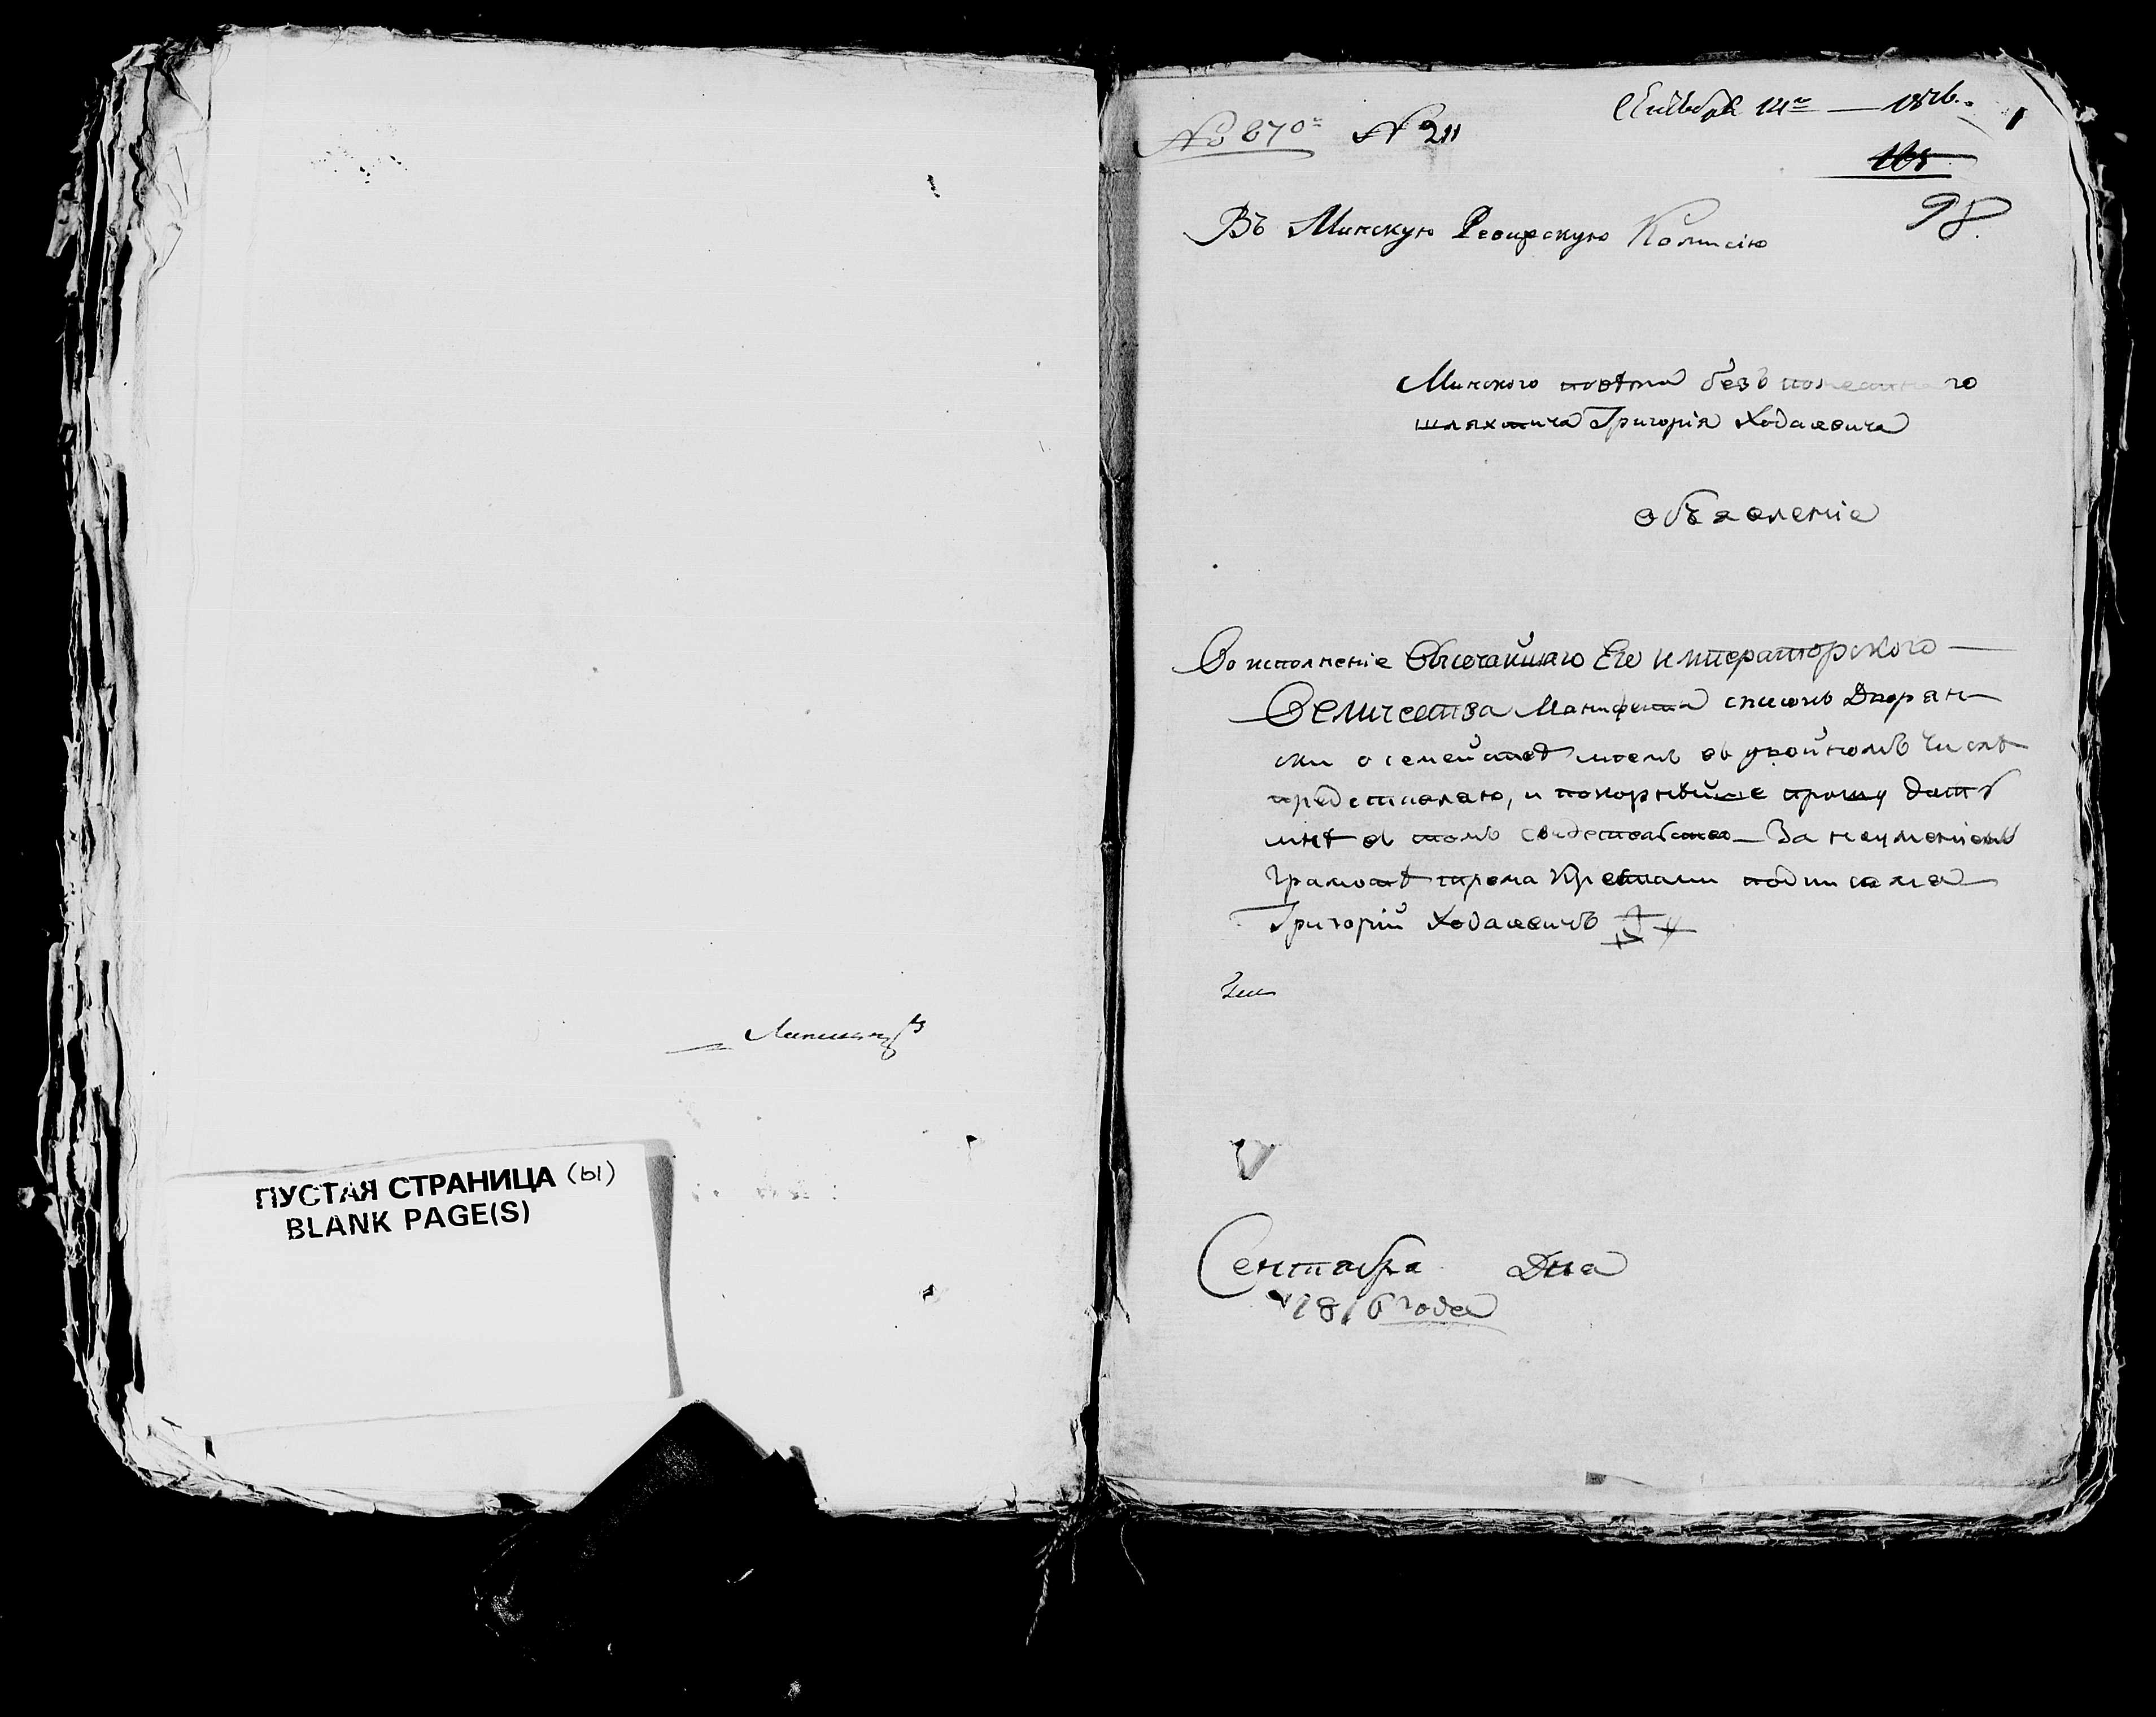 ПУСТАЯ СТРАНИЦА (ы)
BLANK PAGE(S)
No 870 N 211
14го 1816.
1
98
Въ Минскую Ревирскую Комисію
Минского повѣта безъ поместнаго
шляхтича Григорія Ходасевича
объявленіе
Во исполненіе Высочайшаго Его императорского
Величества Манифеста списокъ Дворян
ски о семействѣ моемъ въ двойномъ числѣ
представляю, и покорнѣйше прошу дать
мнѣ въ томъ свидетельство – За неумѣніемъ
грамотѣ трема крестами подписался
Григорій Ходасевичъ
Сентября Дня
1816 года